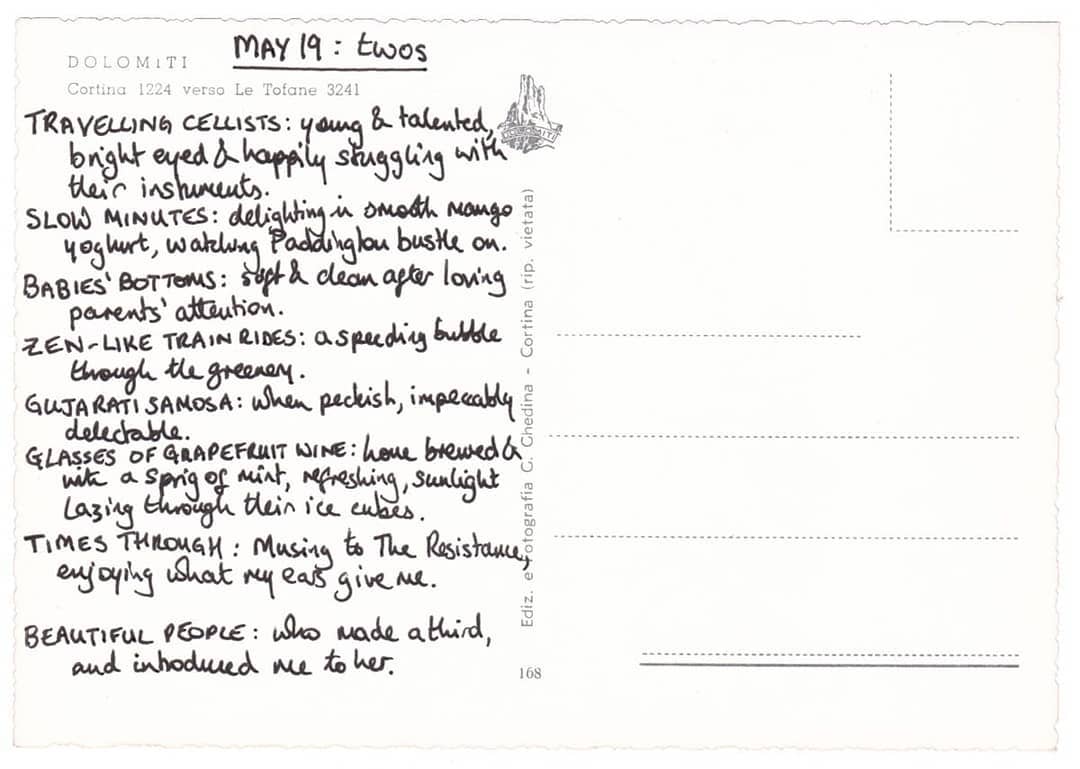 MAY 19 : twos
DOLOMITI
Cortina 1224 verso Le Tofane 3241
TRAVELLING CELLISTS: young & talented,
bright eyed & happily struggling with
their instruments.
SLOW MINUTES: delighting in smooth mango
yoghurt, watching Paddington bustle on.
BABIES' BOTTOMS: soft & clean after loving
parents' attention.
ZEN-LIKE TRAIN RIDES: a speeding bubble
through the greenery.
GUJARATI SAMOSA: when peckish, impeccably
delectable.
GLASSES OF GRAPEFRUIT WINE: home brewed &
with a sprig of mint, refreshing, sunlight
lazing through their ice cubes.
TIMES THROUGH: Musing to The Resistance,
enjoying what my ears give me.
BEAUTIFUL PEOPLE: who made a third,
and introduced me to her.
DOLOMITI
Ediz. e Fotografia G. Ghedina - Cortina (rip. vietata)
168